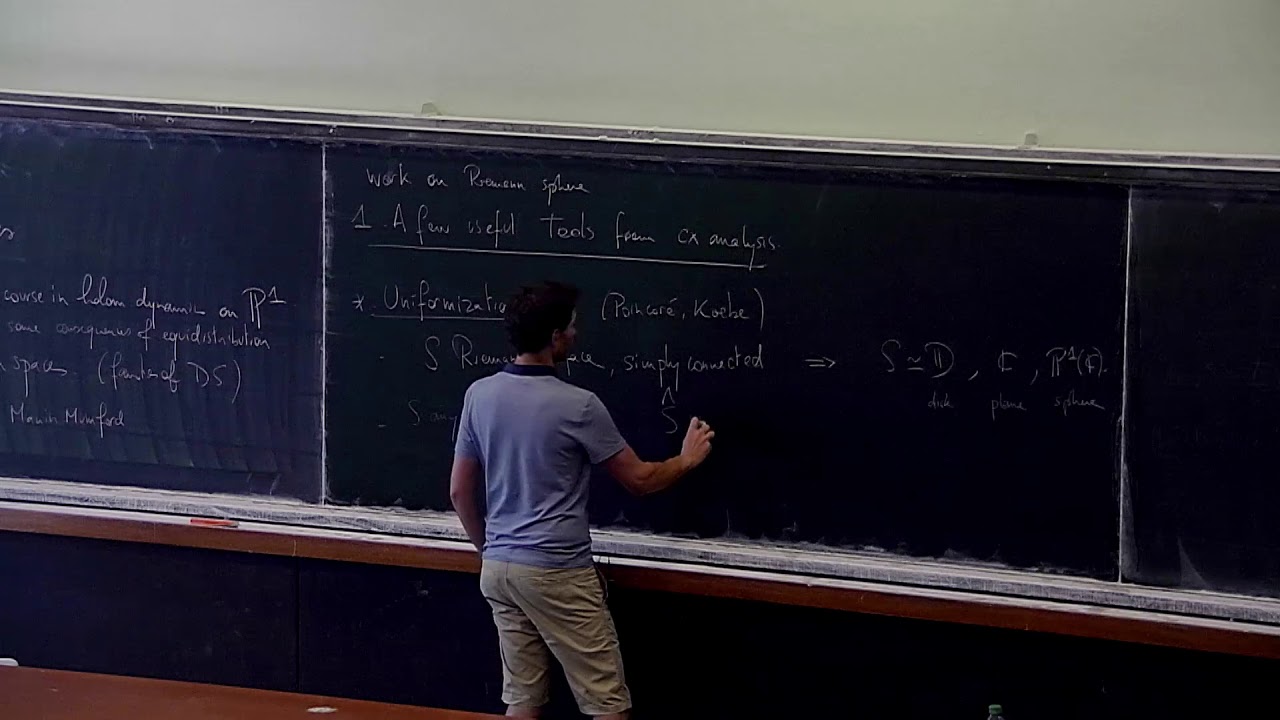 course in holom dynamic on ℙ¹
some consequences of equidistribution
space. (families of DS)
Manin Mumford
work on Riemann sphere
1. A few useful tools from cx analysis.
* Uniformizatio (Poincaré, Koebe)
- S Riemann ace, simply connected ⇒ S ≃ 𝔻, ℂ, ℙ¹(ℂ).
disk plane sphere
- S any Ŝ